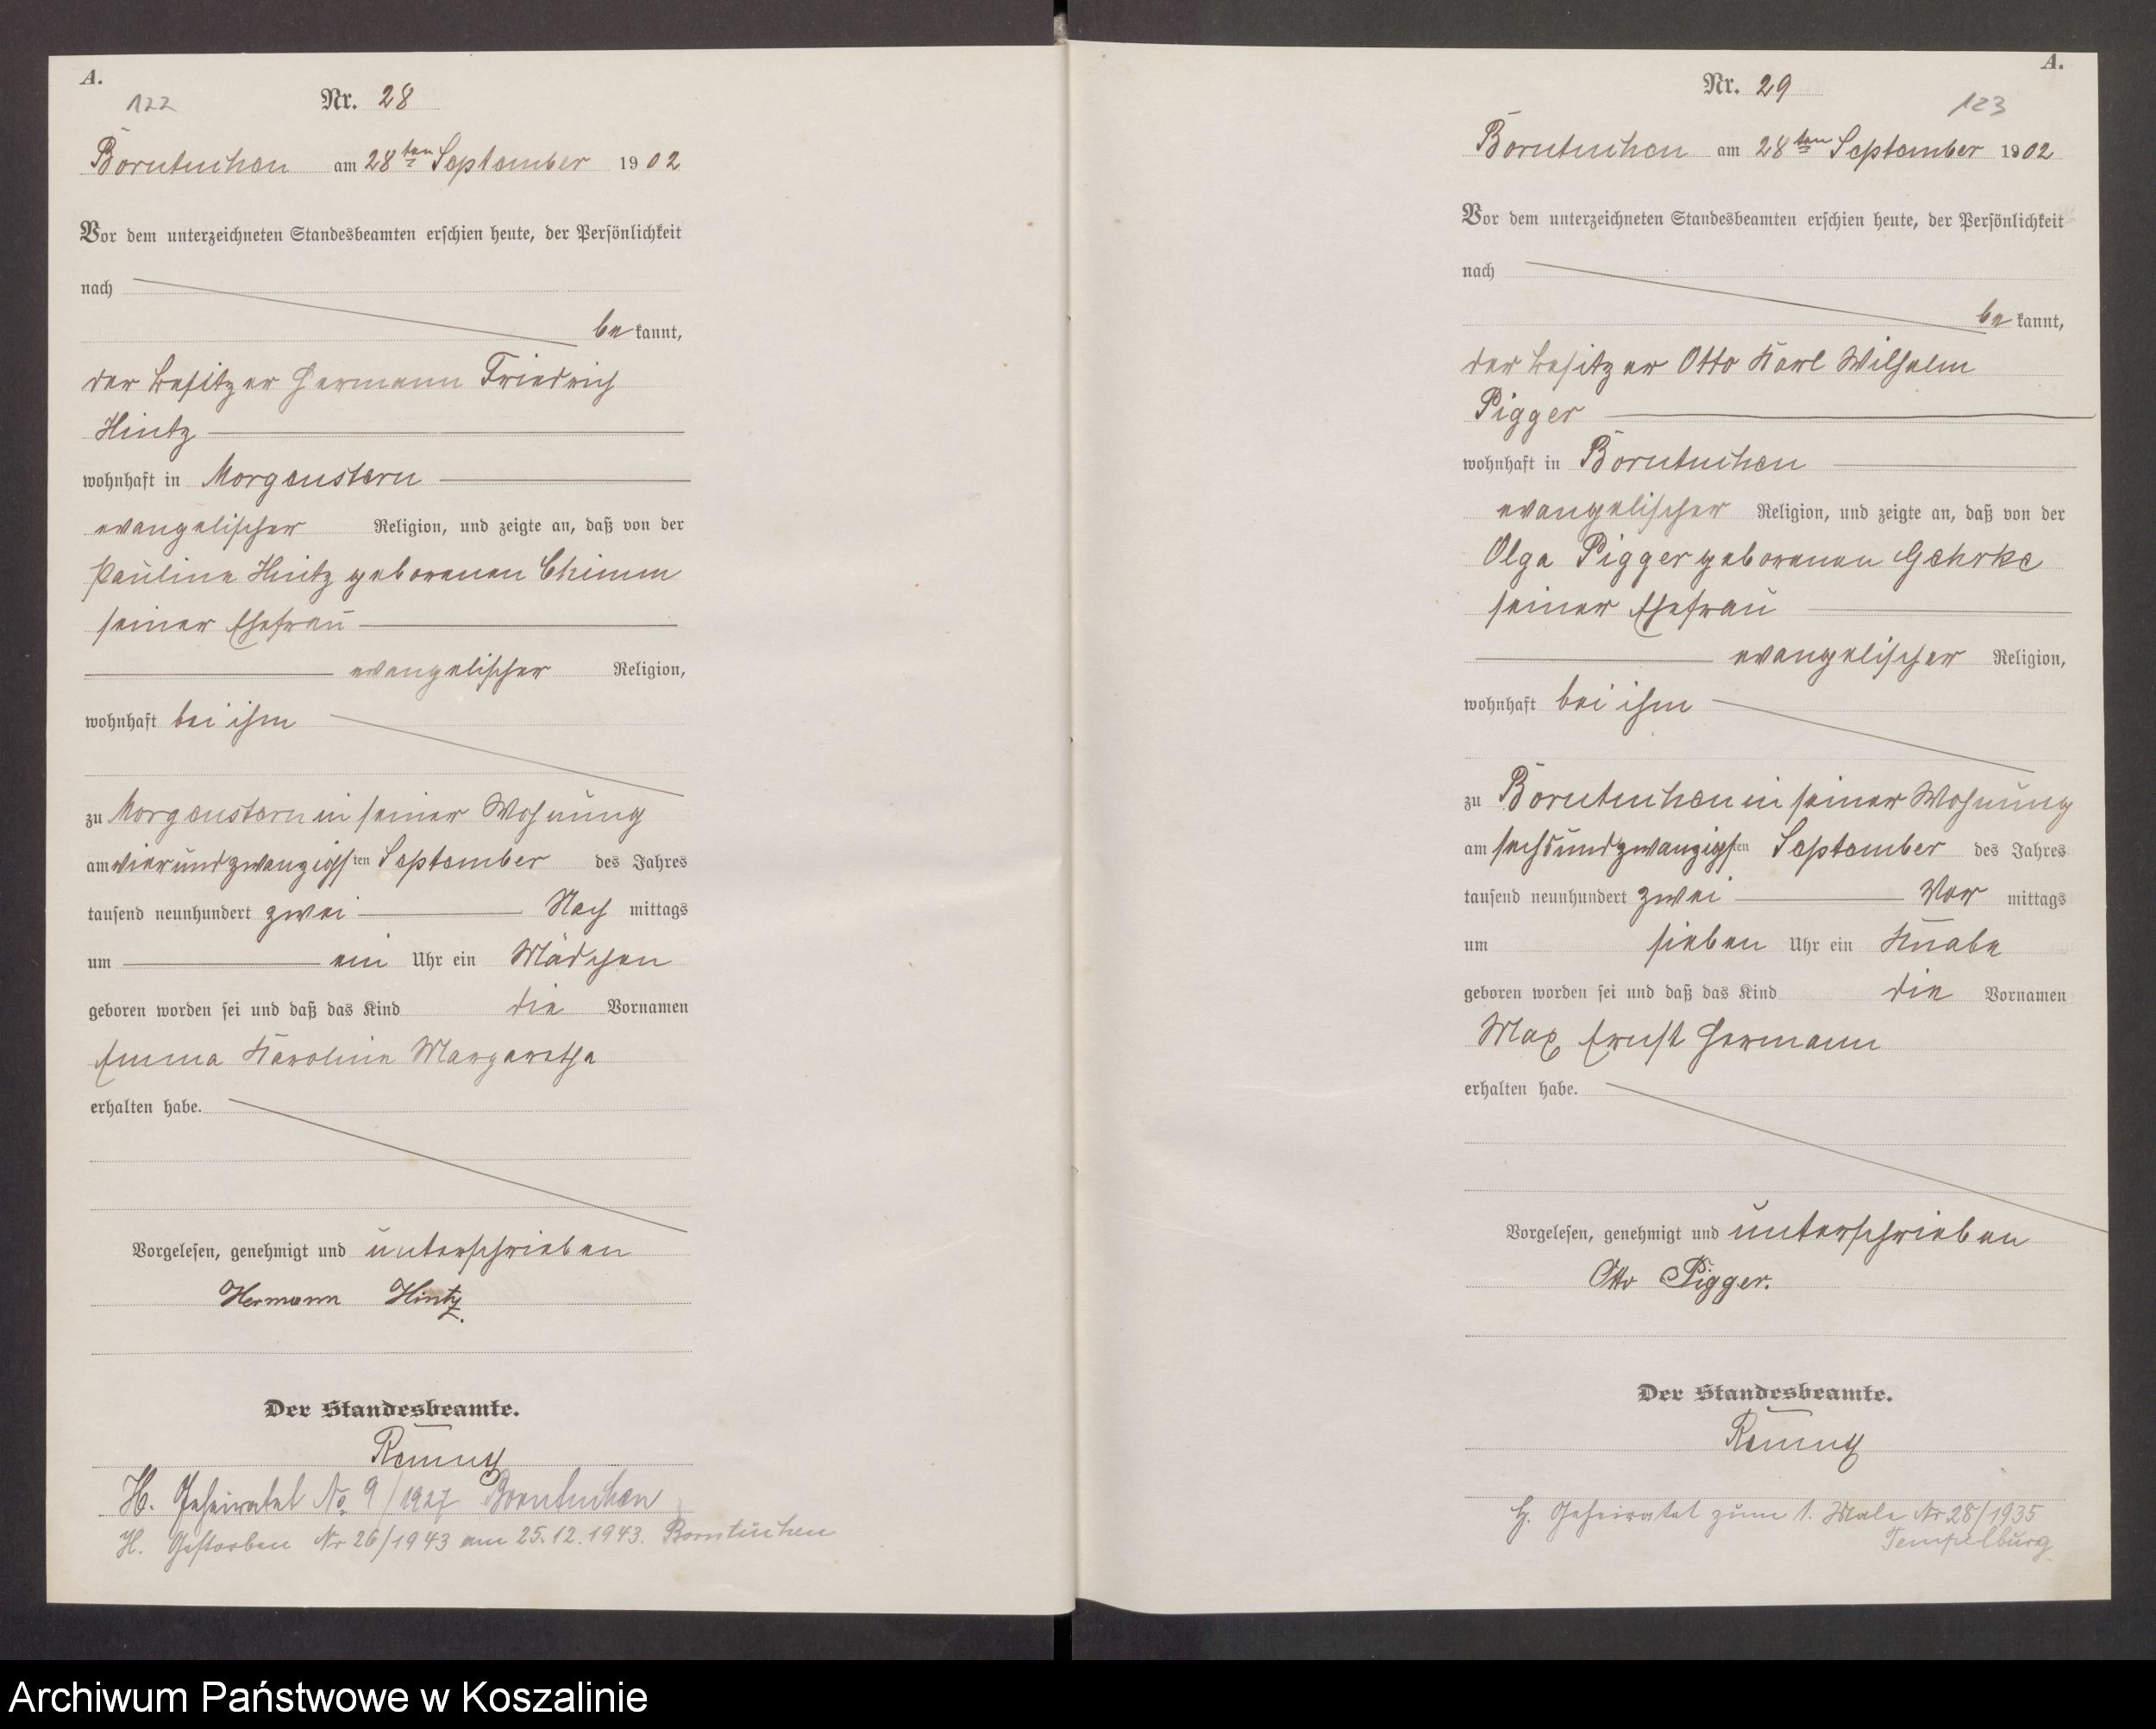 A.
122
Nr. 28
Borntuchen am 28ten September 1902
Vor dem unterzeichneten Standesbeamten erschien heute, der Persönlichkeit
nach
bekannt,
der Besitzer Hermann Friedrich
Hintz
wohnhaft in Morgenstern
evangelischer Religion, und zeigte an, daß von der
Pauline Hintz geborenen
seiner Ehefrau
evangelischer Religion,
wohnhaft bei ihm
zu Morgenstern in seiner Wohnung
am vierundzwanzigsten September des Jahres
tausend neunhundert zwei Nachmittags
um ein Uhr ein Mädchen
geboren worden sei und daß das Kind die Vornamen
Emma Karoline Margaretha
erhalten habe.
Vorgelesen, genehmigt und unterschrieben
Hermann Hintz.
Der Standesbeamte.
H. Geheiratet No 9/1927 Borntuchen
H. Gestorben Nr 26/1943 am 25.12.1943. Borntuchen
A.
Nr. 29
123
Borntuchen am 28ten September 1902
Vor dem unterzeichneten Standesbeamten erschien heute, der Persönlichkeit
nach
bekannt,
der Besitzer Otto Karl Wilhelm
Pigger
wohnhaft in Borntuchen
evangelischer Religion, und zeigte an, daß von der
Olga Pigger geborenen Gehrke
seiner Ehefrau
evangelischer Religion,
wohnhaft bei ihm
zu Borntuchen in seiner Wohnung
am sechsundzwanzigsten September des Jahres
tausend neunhundert zwei Vormittags
um sieben Uhr ein Knabe
geboren worden sei und daß das Kind die Vornamen
Max Ernst Hermann
erhalten habe.
Vorgelesen, genehmigt und unterschrieben
Otto Pigger.
Der Standesbeamte.
H. Geheiratet zum 1. Male Nr 28/1935
Tempelburg
Archiwum Państwowe w Koszalinie